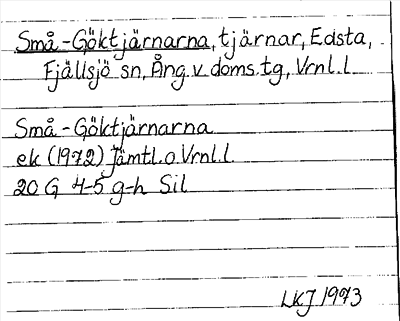 Små-Göktjärnarna, tjärnar, Edsta,
Fjällsjö sn, Ång.v.doms.tg, Vrnl.l.
Små-Göktjärnarna
ek (1972) Jämtl.o.Vrnl.l.
20 G 4-5 g-h Sil
LKJ 1973